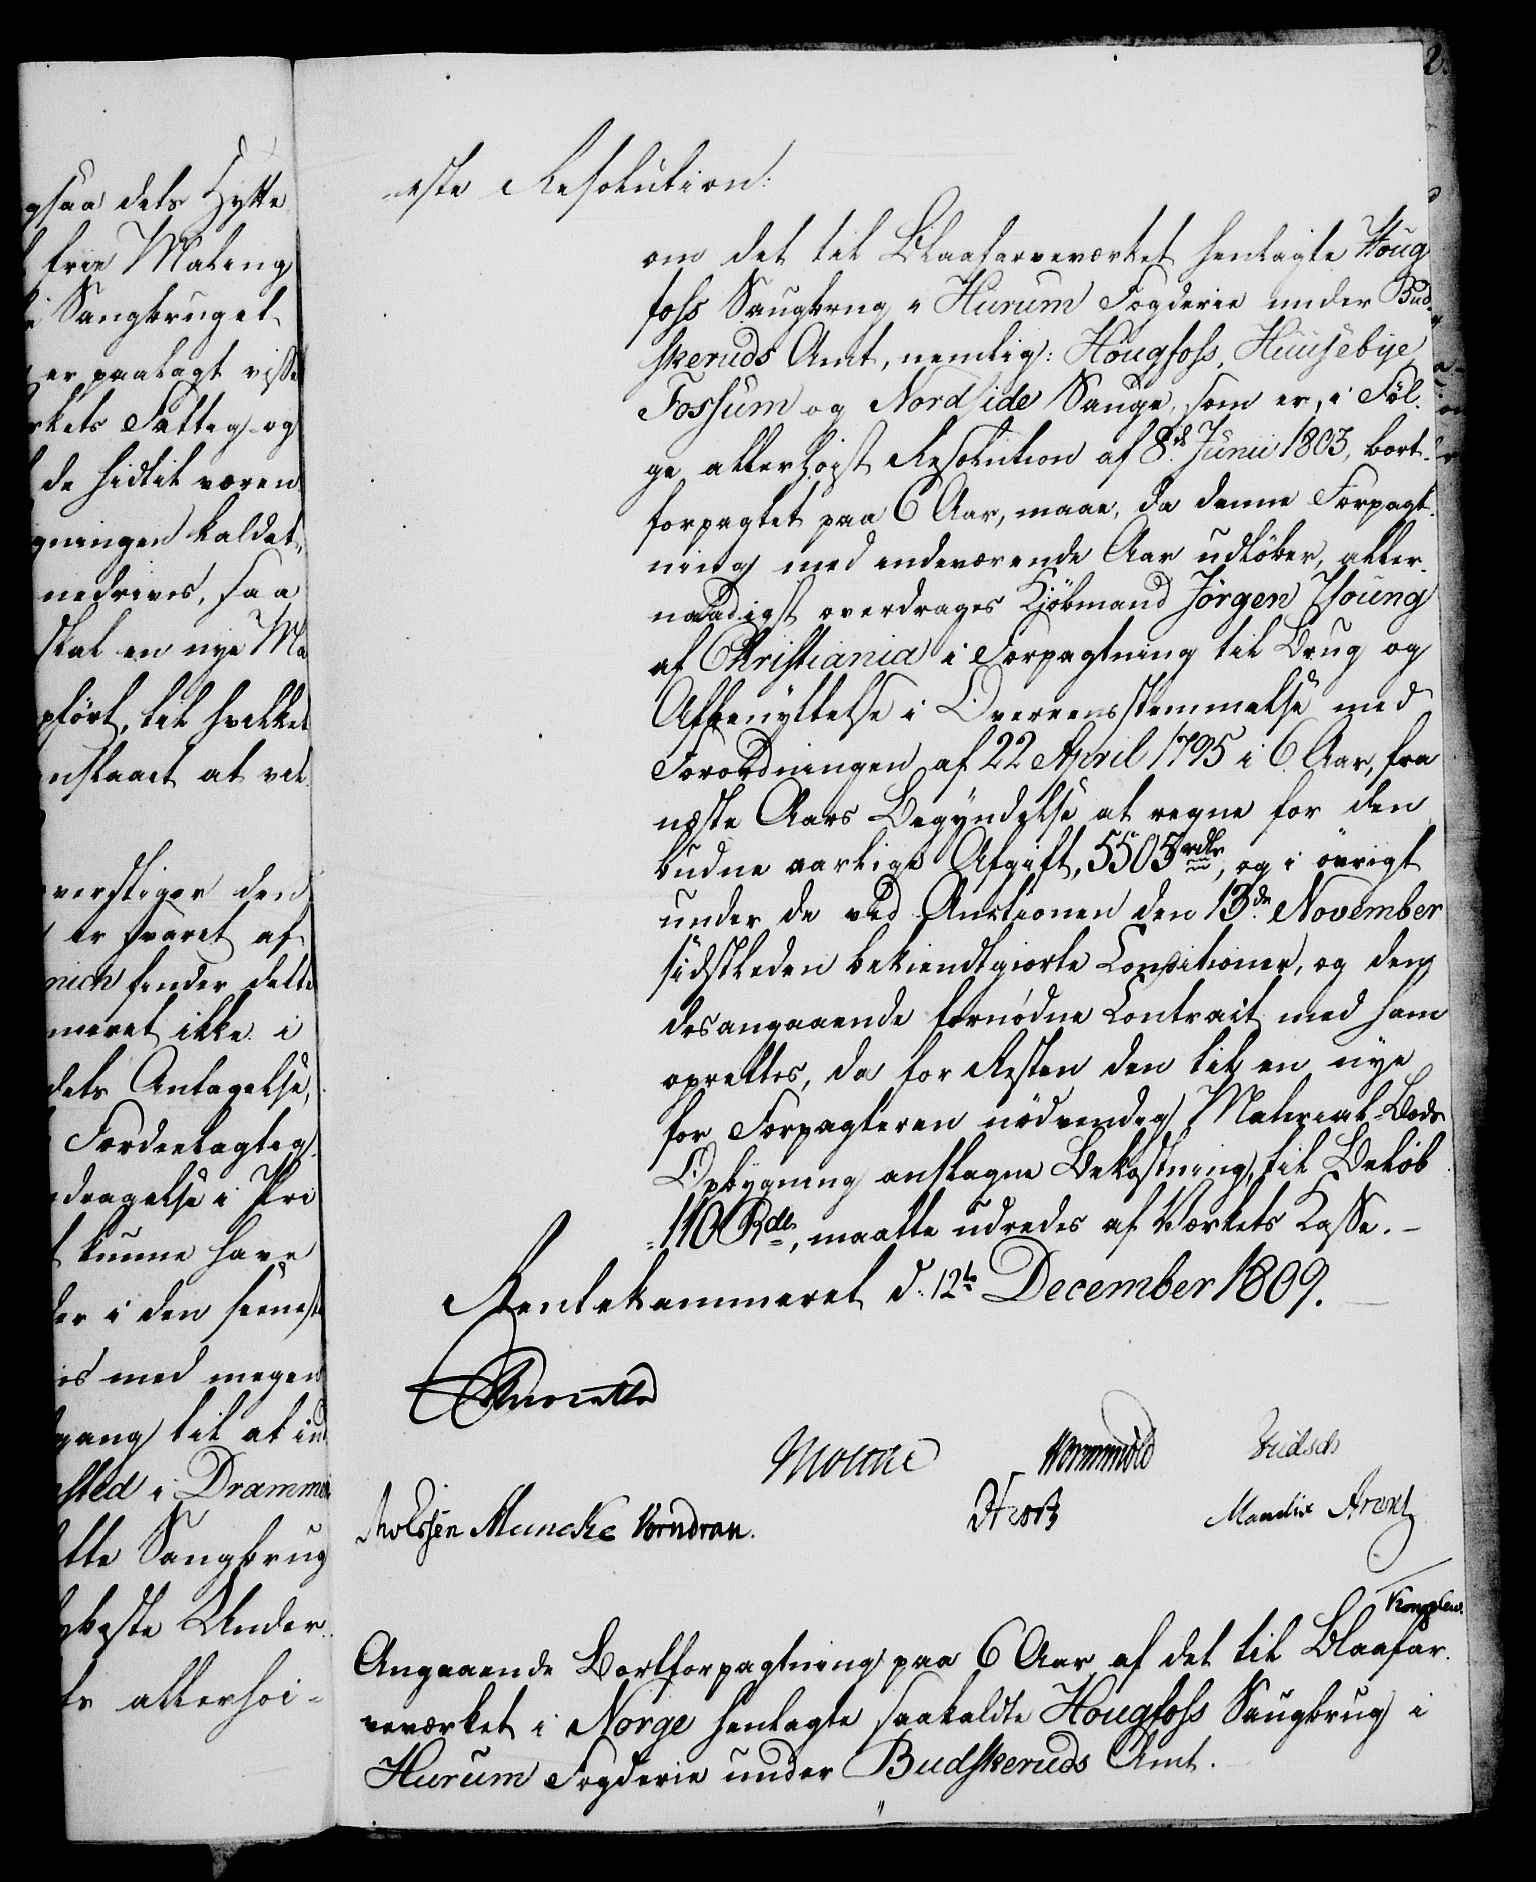 gsaa dets Hytte
frie Maling
Saugbruget
er paalagt visse
kets Fattig og
de hidtil væren
gningen kaldet,
nedrives, saa
skal en nye Ma
pført, til hvilket
nslaaet at vel
verstiger den
er svaret af
nich finder dette
meret ikke i
dets Antagelse,
Fordeelagtig
dragelse i Pri
kunne have
er i den seenest
is med megen
gang til at ind
sted i Dramme
tte Saugbrug
beste Under
ts allerhøi-
este Resolution:
om det til Blaafarveværket henlagte Houg
foss Saugbrug i Hurum Fogderie under Bud
skeruds Amt, nemlig: Hougfoss, Huusebye
Fossum og Nordlide Sauge, som er, i Føl
ge allerhøist Resolution af 8de Junii 1803, bort
forpagtet paa 6 Aar, maae, da denne Forpagt
ning med indeværende Aar udløber, aller
naadigst overdrages Kjøbmand Jørgen Young
af Christiania i Forpagtning til Brug og
Afbenyttelse i Overeensstemmelse med
Forordningen af 22 April 1795 i 6 Aar, fra
næste Aars Begyndelse at regne for den
budne aarlige Afgift, 5505 rdlr, og i øvrigt
under de ved Auctionen den 13de November
sidstleden bekiendtgiorte Conditioner, og den
desangaaende fornødne Contract med ham
oprettes, da for Resten den til en nye
for Forpagteren nødvendig Material-Bods
Opbygning anslagne Bekostning, til Beløb
110 Rdlr, maatte udredes af Værkets Kasse. –
Rentekammeret d: 12te December 1809.
Wormskiold
Muncke Vorndran.
Mandix Arent
Angaaende Bortforpagtning paa 6 Aar af det til Blaafar
veværket i Norge henlagte saakaldte Hougfoss Saugbrug i
Hurum Fogderie under Budskeruds Amt.